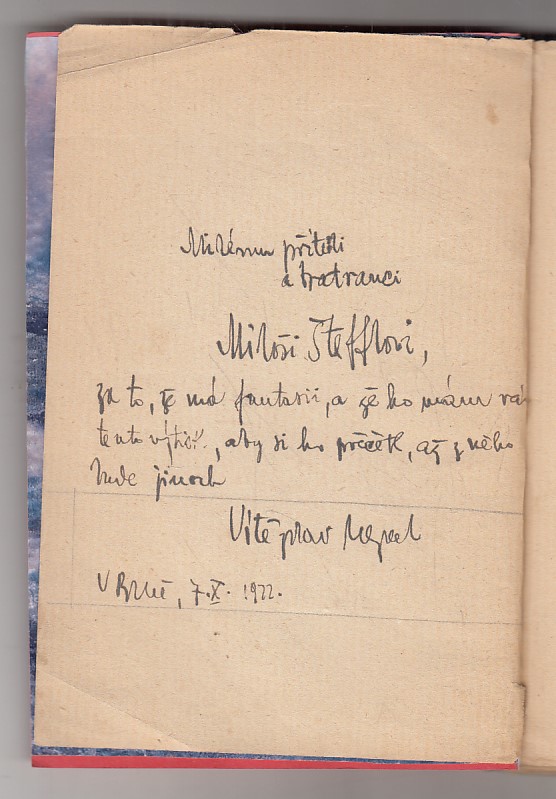 Milému příteli
a bratranci
Miloši Štefflovi,
za to, že má fantasii, a že ho mám rád
tento výtisk, aby si ho přečetl, až z něho
bude jinoch
Vítězslav Nezval
V Brně, 7.X. 1922.